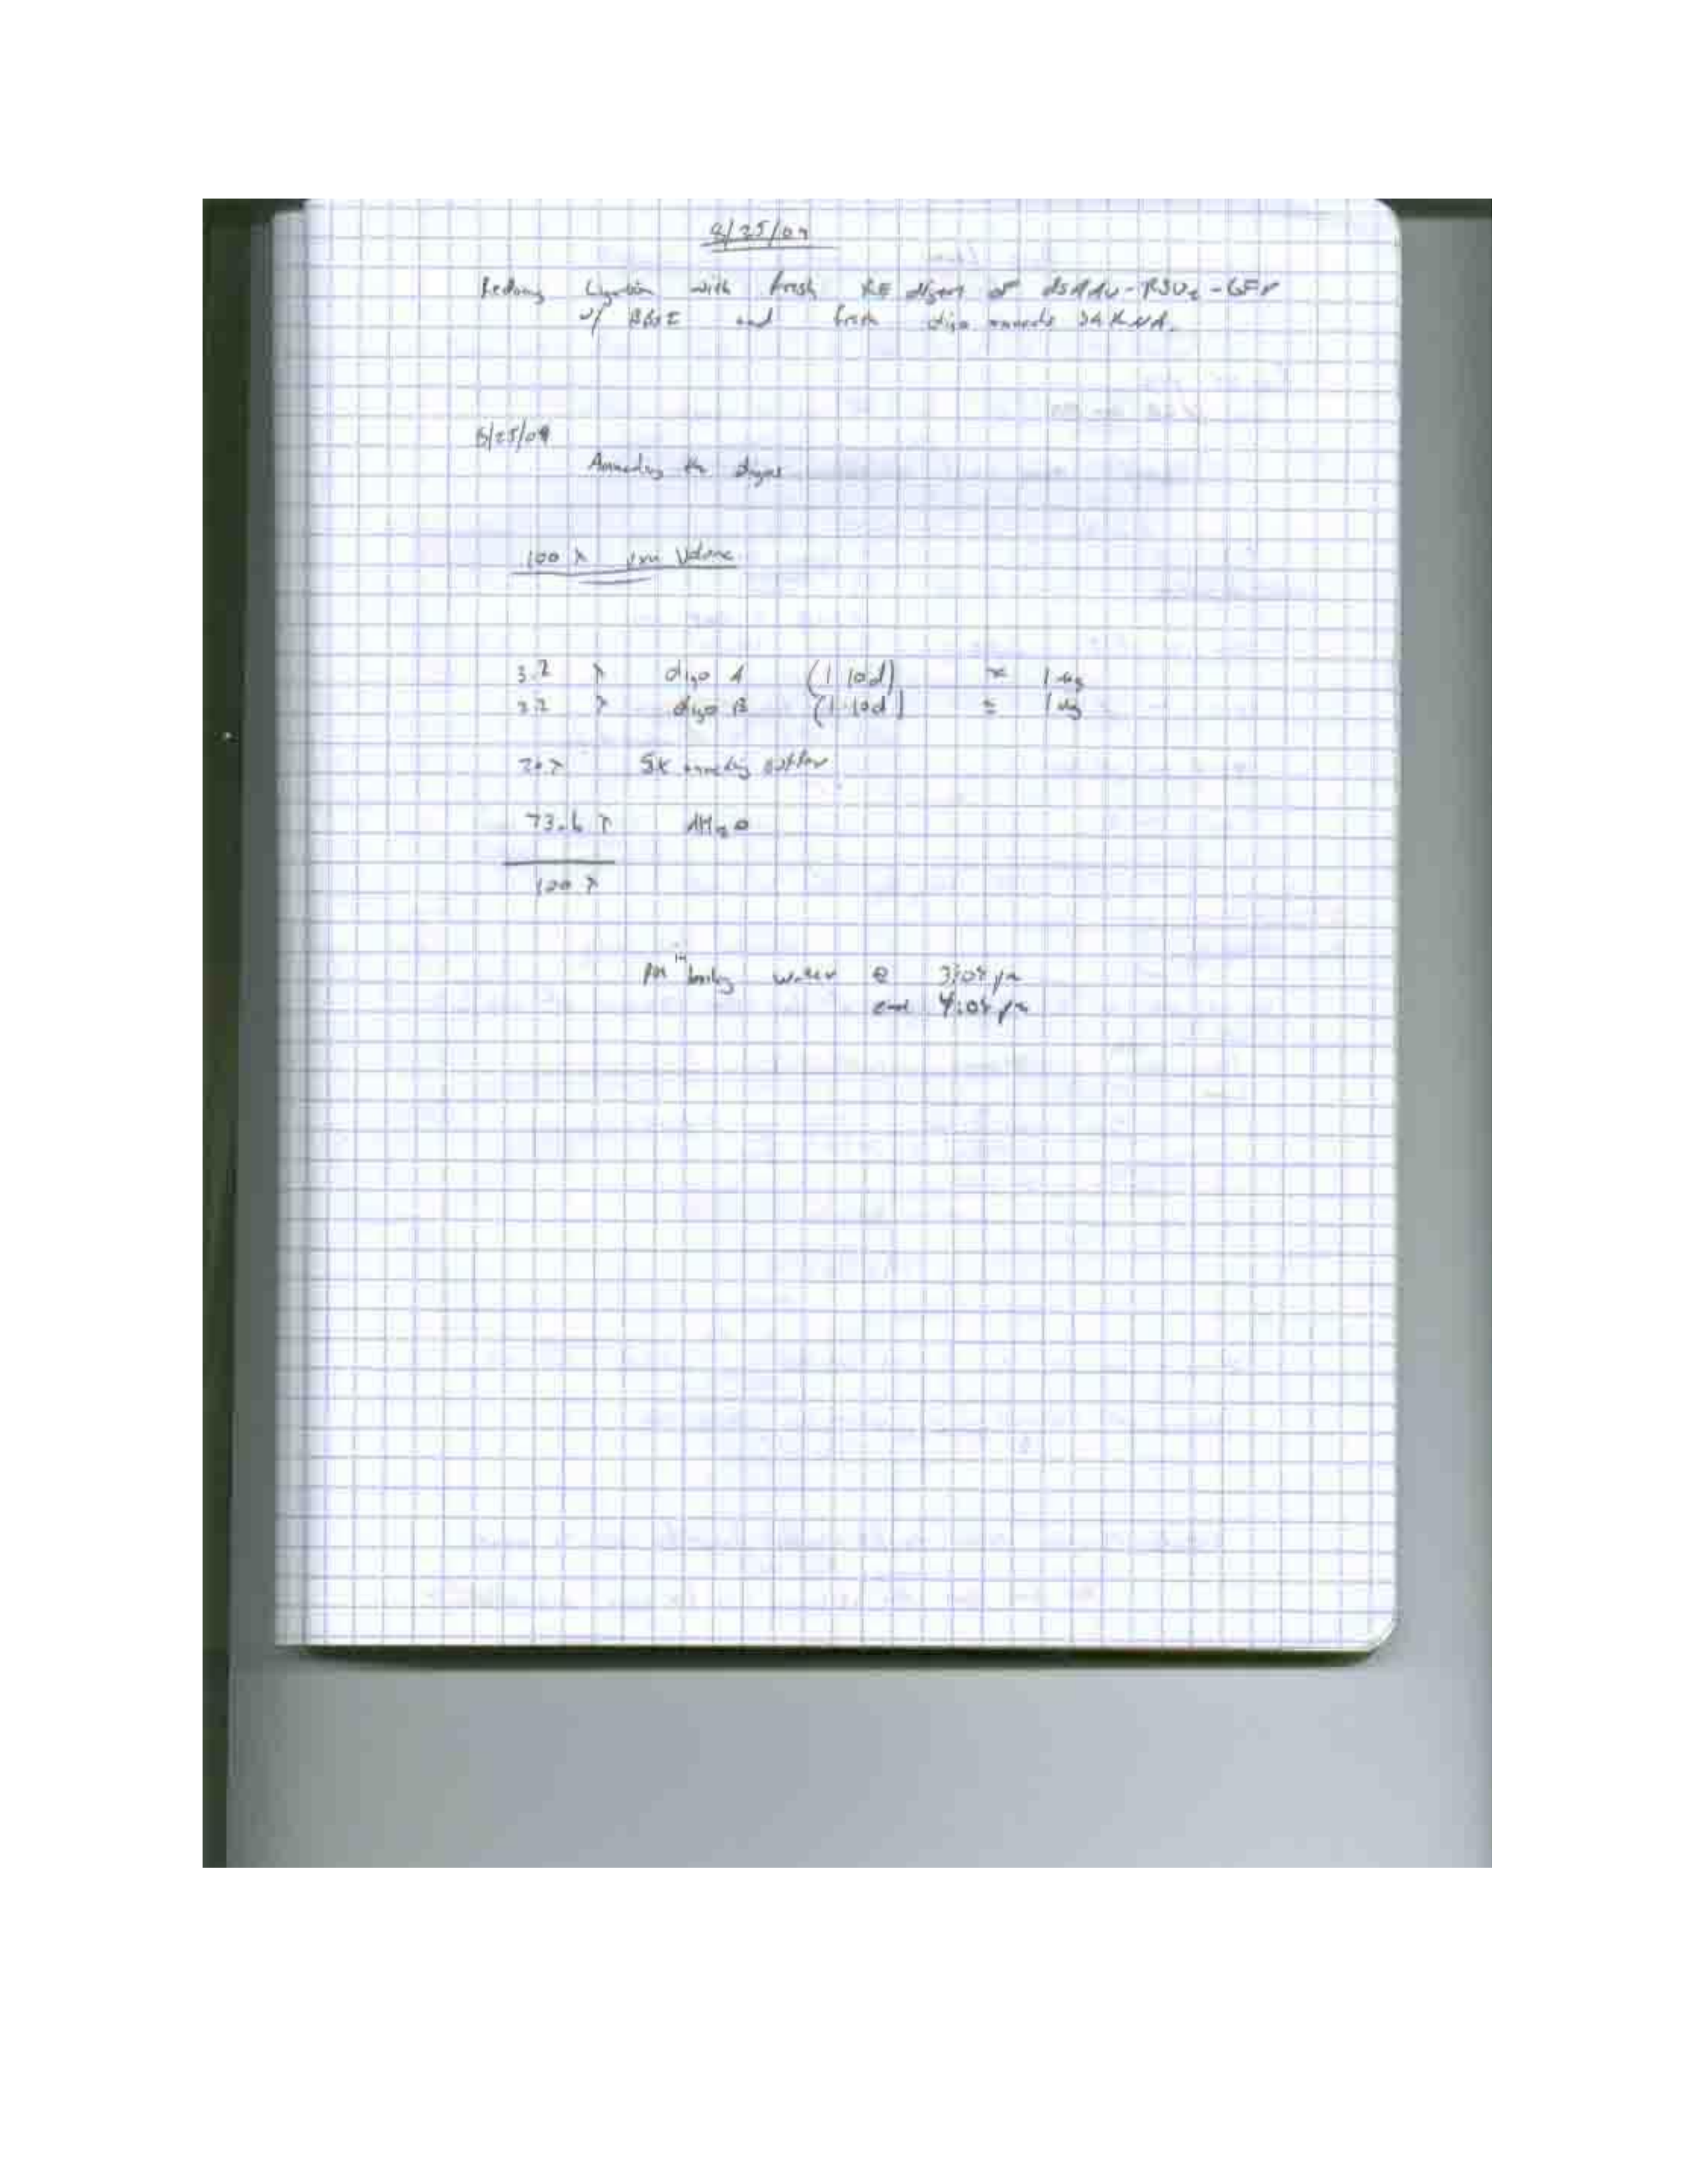 8/25/09
Redoing Ligation with fresh RE digest of dsAAV-RSV2-GFP
w/ and fresh oligo
8/25/09
Annealing the oligos
100 λ rxn Volume
3.2 λ oligo A (1:10d) ≈ 1 ug
3.2 λ oligo B (1:10d) ≈ 1 ug
20 λ 5X annealing buffer
73.6 λ dH2O
100 λ
put in boiling water @ 3:08 pm
end 4:08 pm